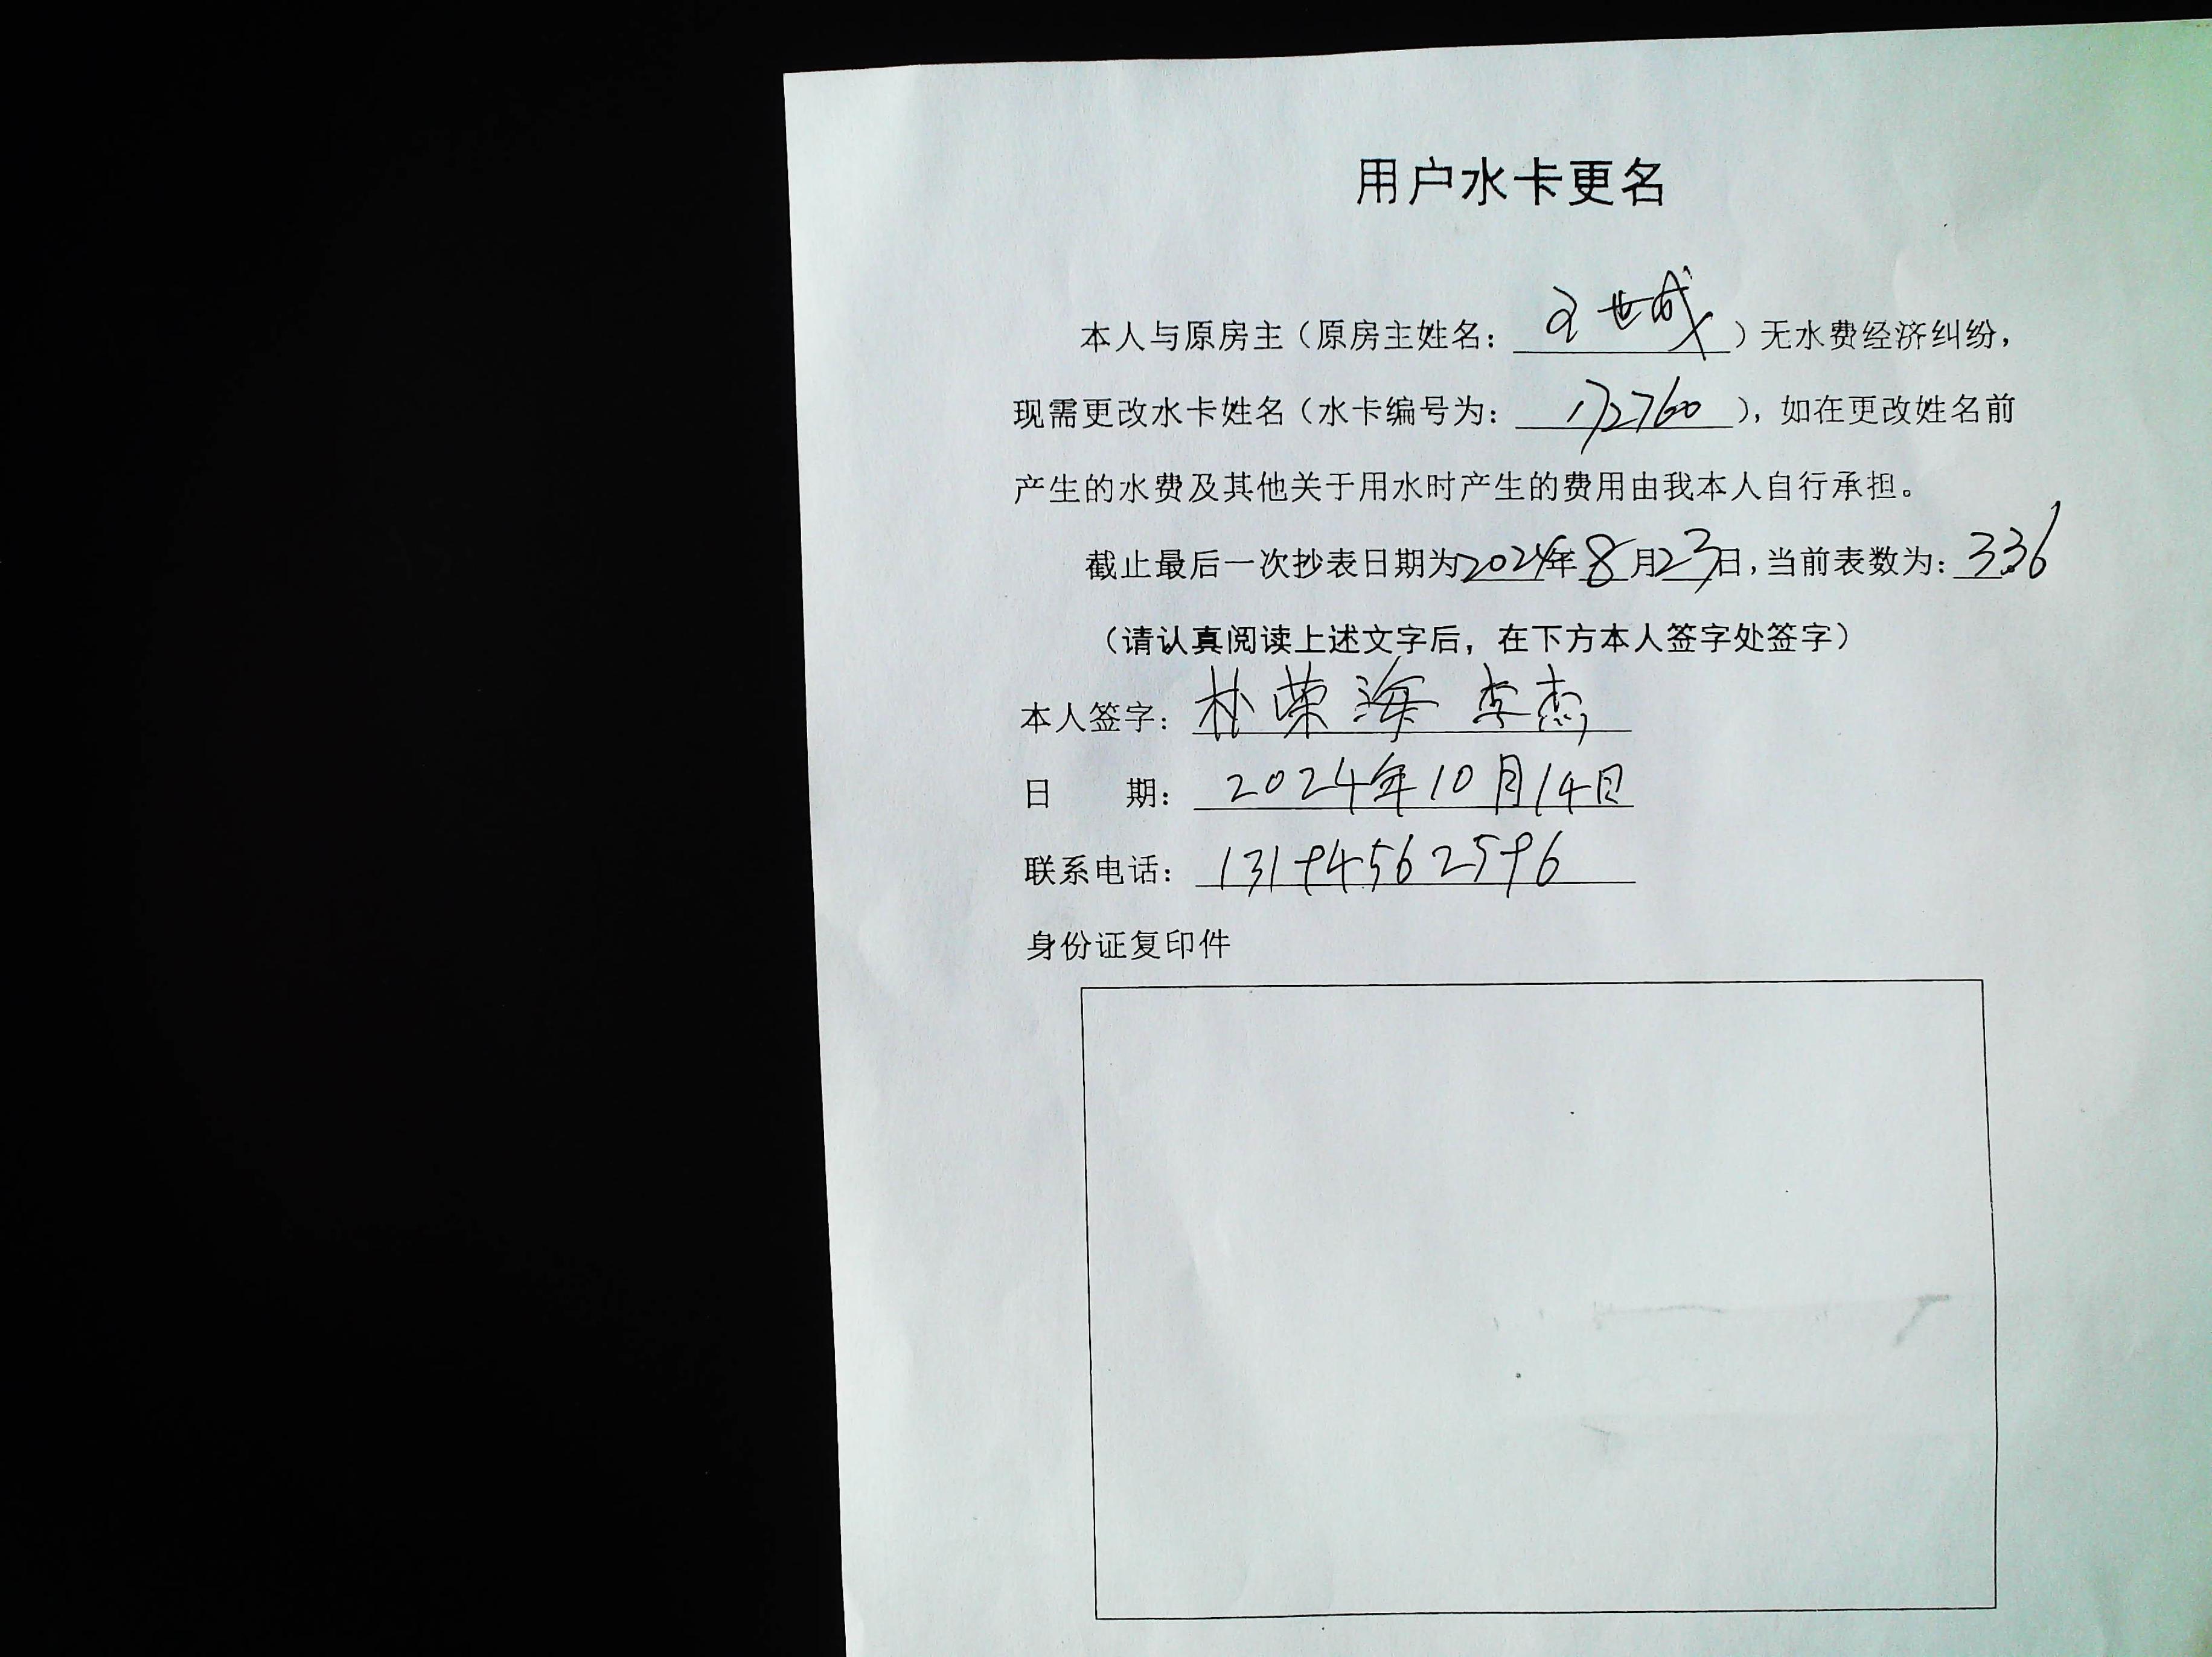 用户水卡更名
本人与原房主（原房主姓名：世成）无水费经济纠纷，
现需更改水卡姓名（水卡编号为：172760），如在更改姓名前
产生的水费及其他关于用水时产生的费用由我本人自行承担。
截止最后一次抄表日期为2024年8月23日，当前表数为：336
（请认真阅读上述文字后，在下方本人签字处签字）
本人签字：朴荣海 李杰
日 期：2024年10月14日
联系电话：13194562596
身份证复印件